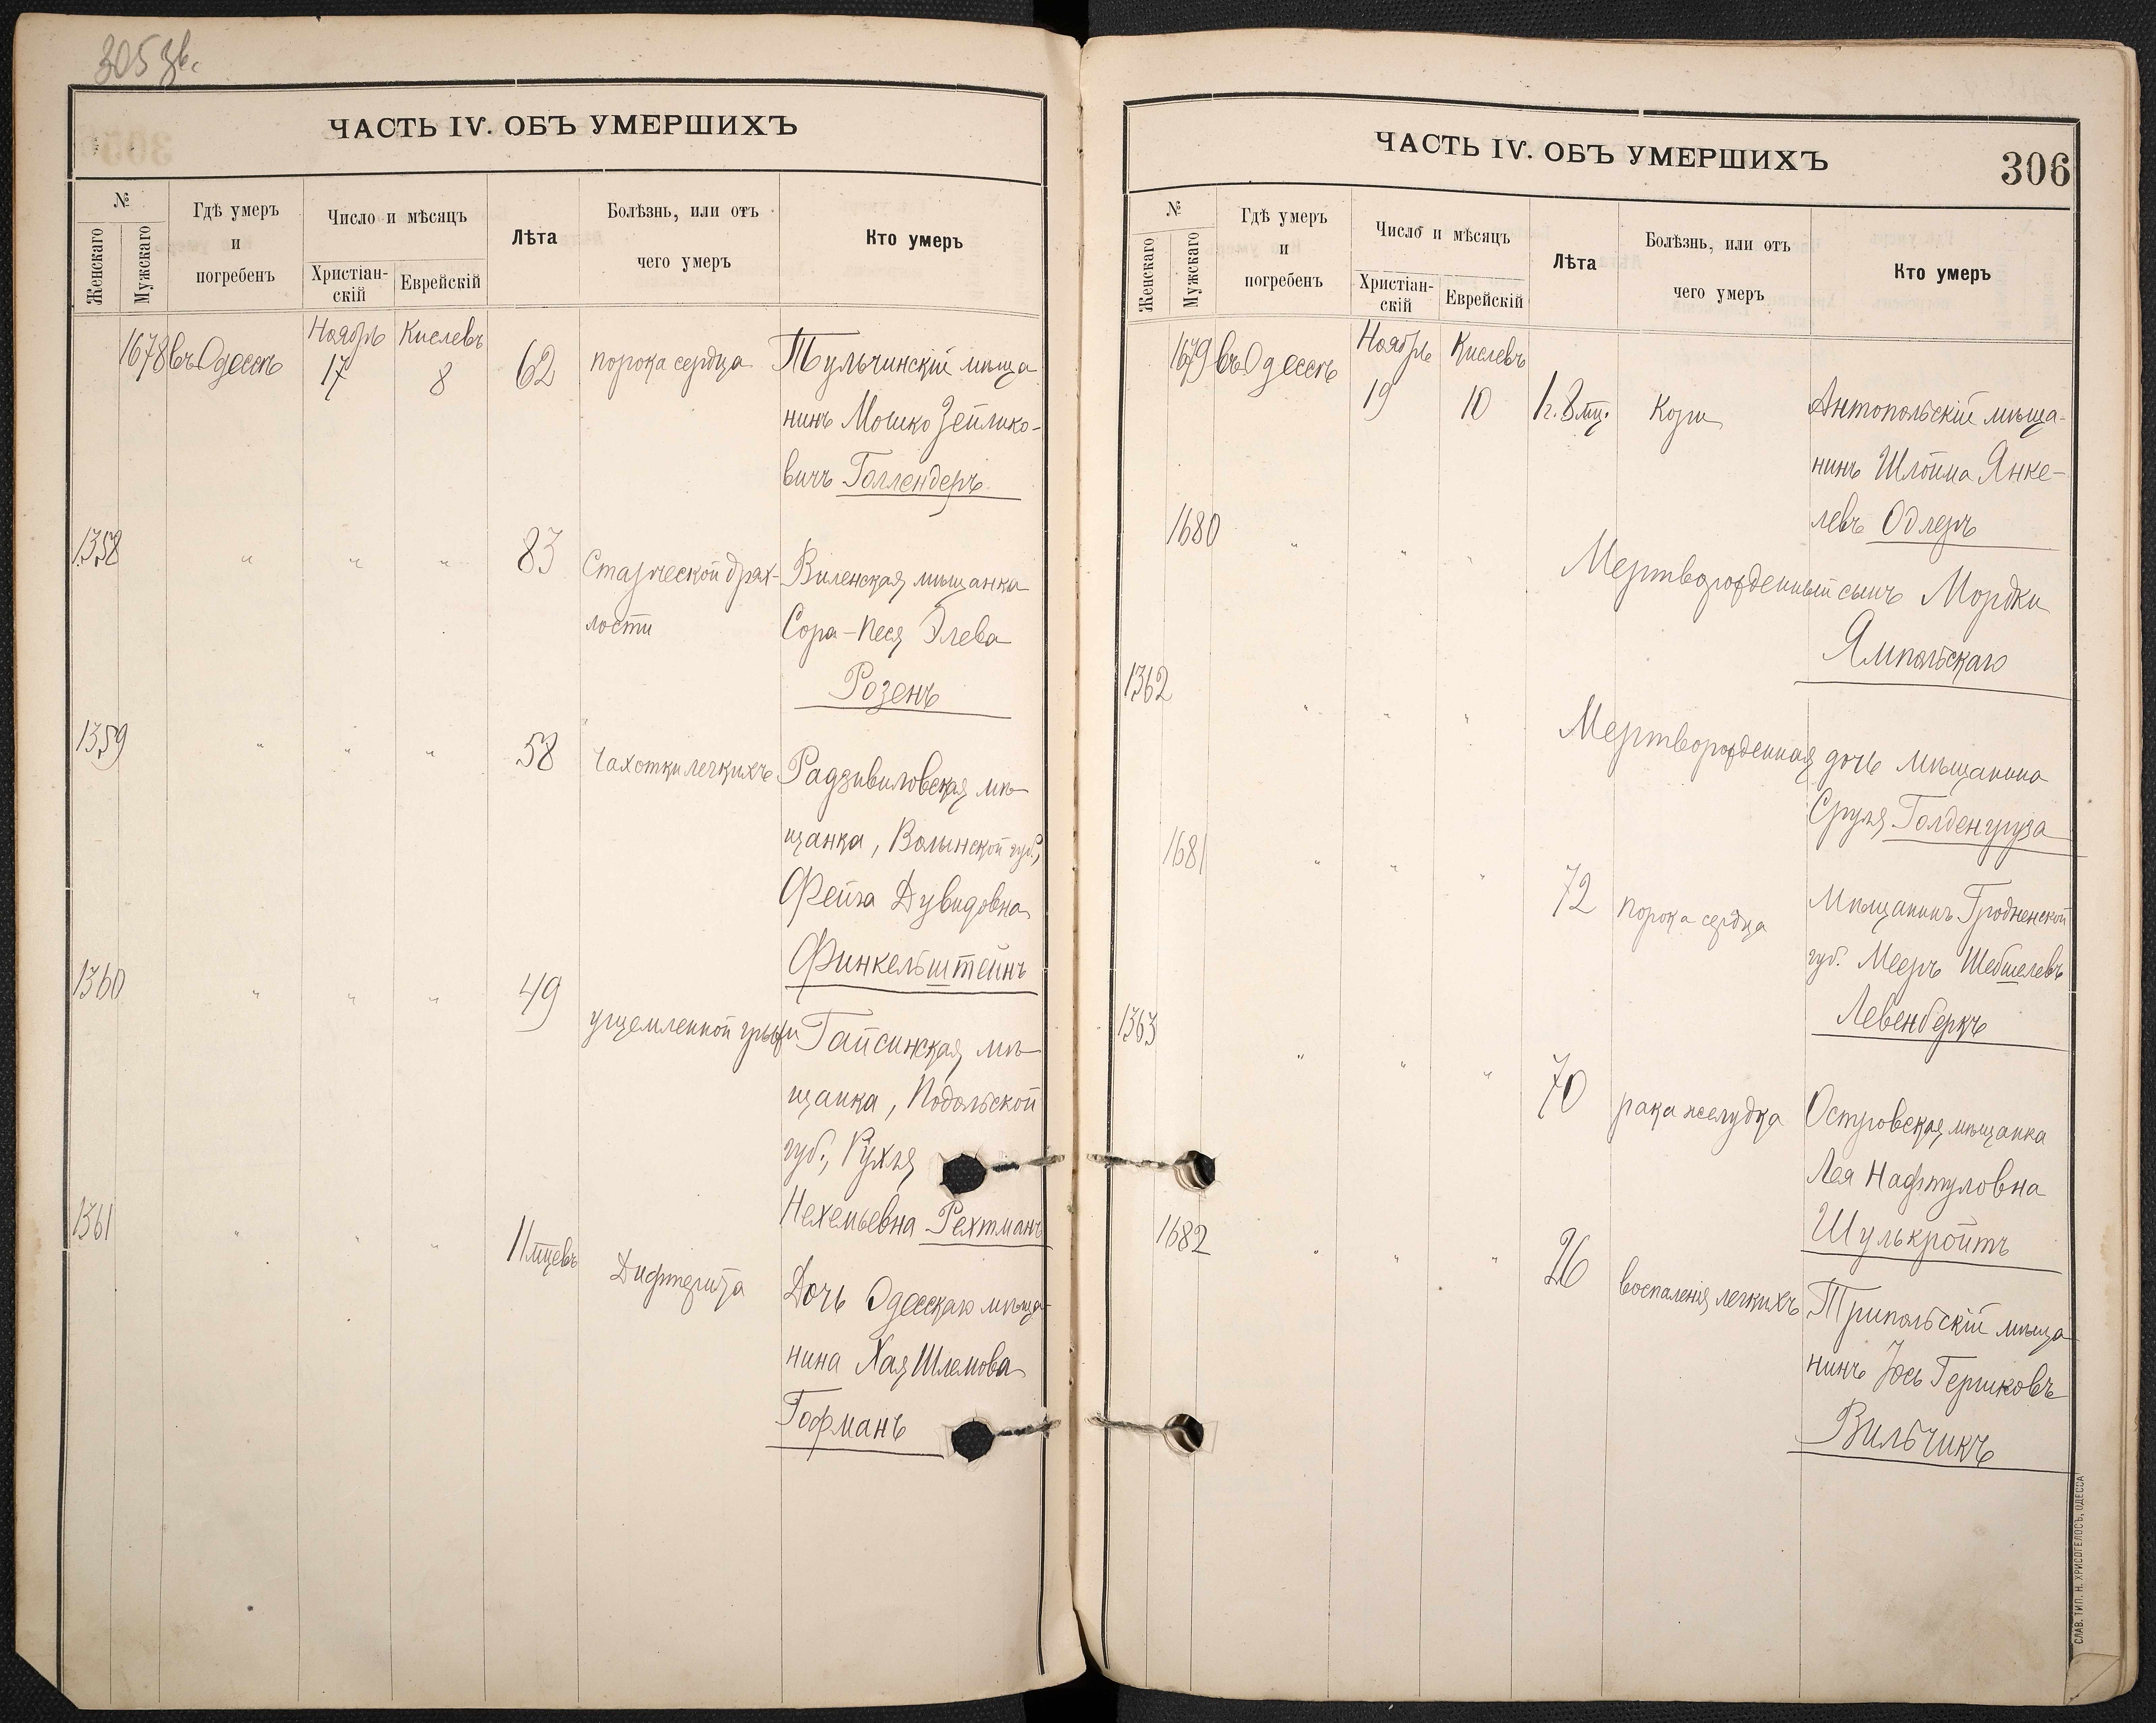 305 зв.
ЧАСТЬ IV. ОБЪ УМЕРШИХЪ
№
Женскаго
Мужскаго
Гдѣ умеръ
и
погребенъ
Число и мѣсяцъ
Христіан-
скій
Еврейскій
Лѣта
Болѣзнь, или отъ
чего умеръ
Кто умеръ
1678 въ Одессѣ Ноябрь 17 Кислевъ 8 62 порока сердца Тульчинскій мѣща
нинъ Мошко Зейлико-
вичъ Голлендеръ
1358 " " " 83 Старческой дрях- Виленская мѣщанка
лости Сора-Песя Элева
Розенъ
1359 " " " 58 Чахотки легкихъ Радзивиловская мѣ-
щанка, Волынской губ.,
Фейга Дувидовна
Финкельштейнъ
1360 " " " 49 ущемленной грыжи Гайсинская мѣ-
щанка, Подольской
губ., Рухля
Нехемьевна Рехтманъ
1361 " " " 11 мцевъ Дифтерита Дочь Одесскаго мѣща-
нина Хая Шлемова
Гофманъ
ЧАСТЬ IV. ОБЪ УМЕРШИХЪ
306
№
Женскаго
Мужскаго
Гдѣ умеръ
и
погребенъ
Число и мѣсяцъ
Христіан-
скій
Еврейскій
Лѣта
Болѣзнь, или отъ
чего умеръ
Кто умеръ
1679 въ Одессѣ Ноябрь 19 Кислевъ 10 1 г. 8 мц. Кори Антопольскій мѣща-
нинъ Шлойма Янке-
левъ Одлеръ
1680 " " " Мертворожденный сынъ Мордки
Ямпольскаго
1362 " " " Мертворожденная дочь мѣщанина
Сруля Голденгруза
1681 " " " 72 порока сердца Мѣщанинъ Гродненской
губ. Мееръ Шебшелевъ
Левенберкъ
1363 " " " 70 рака желудка Островская мѣщанка
Лея Нафтуловна
Шулькройтъ
1682 " " " 26 воспаленія легкихъ Трипольскій мѣща
нинъ Іось Гершковъ
Вильчикъ
СЛАВ. ТИП. Н. ХРИСОГЕЛОСЪ, ОДЕССА